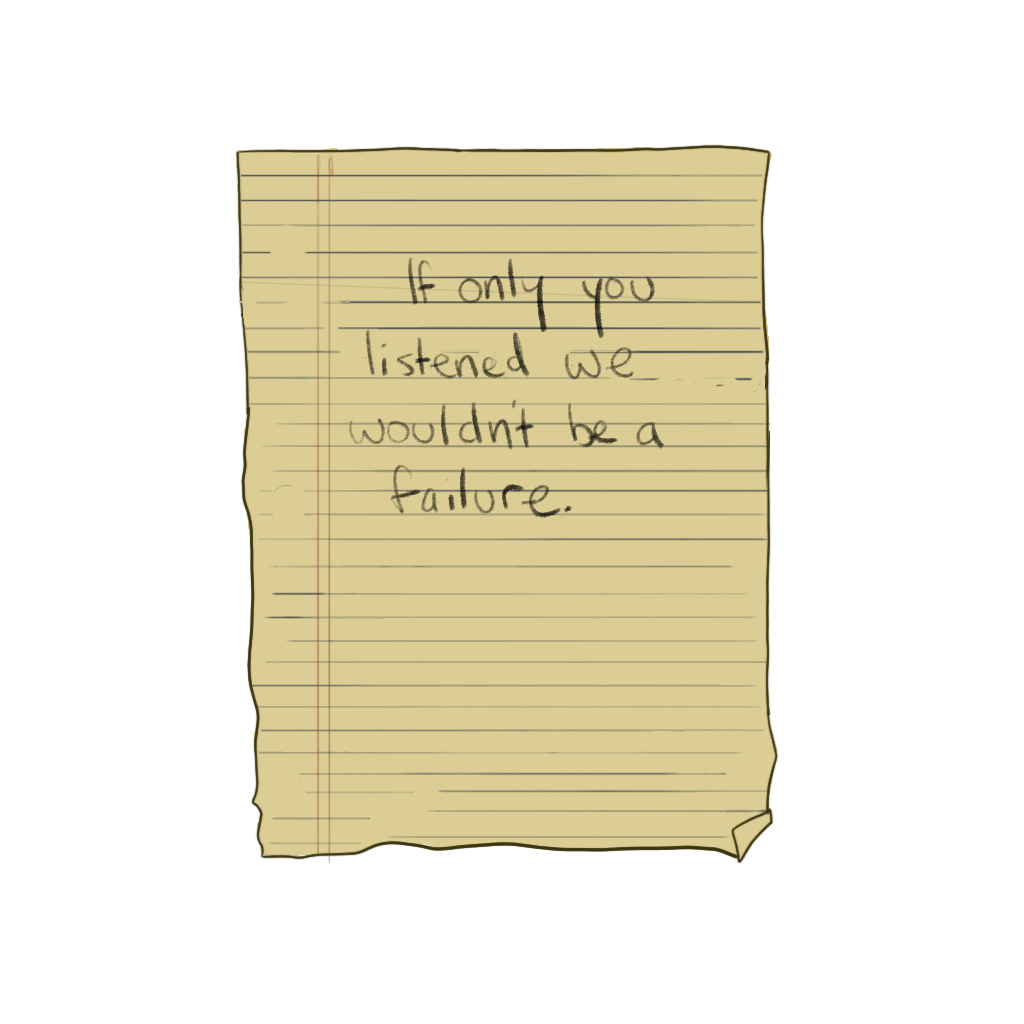 If only you
listened we
wouldn't be a
failure.